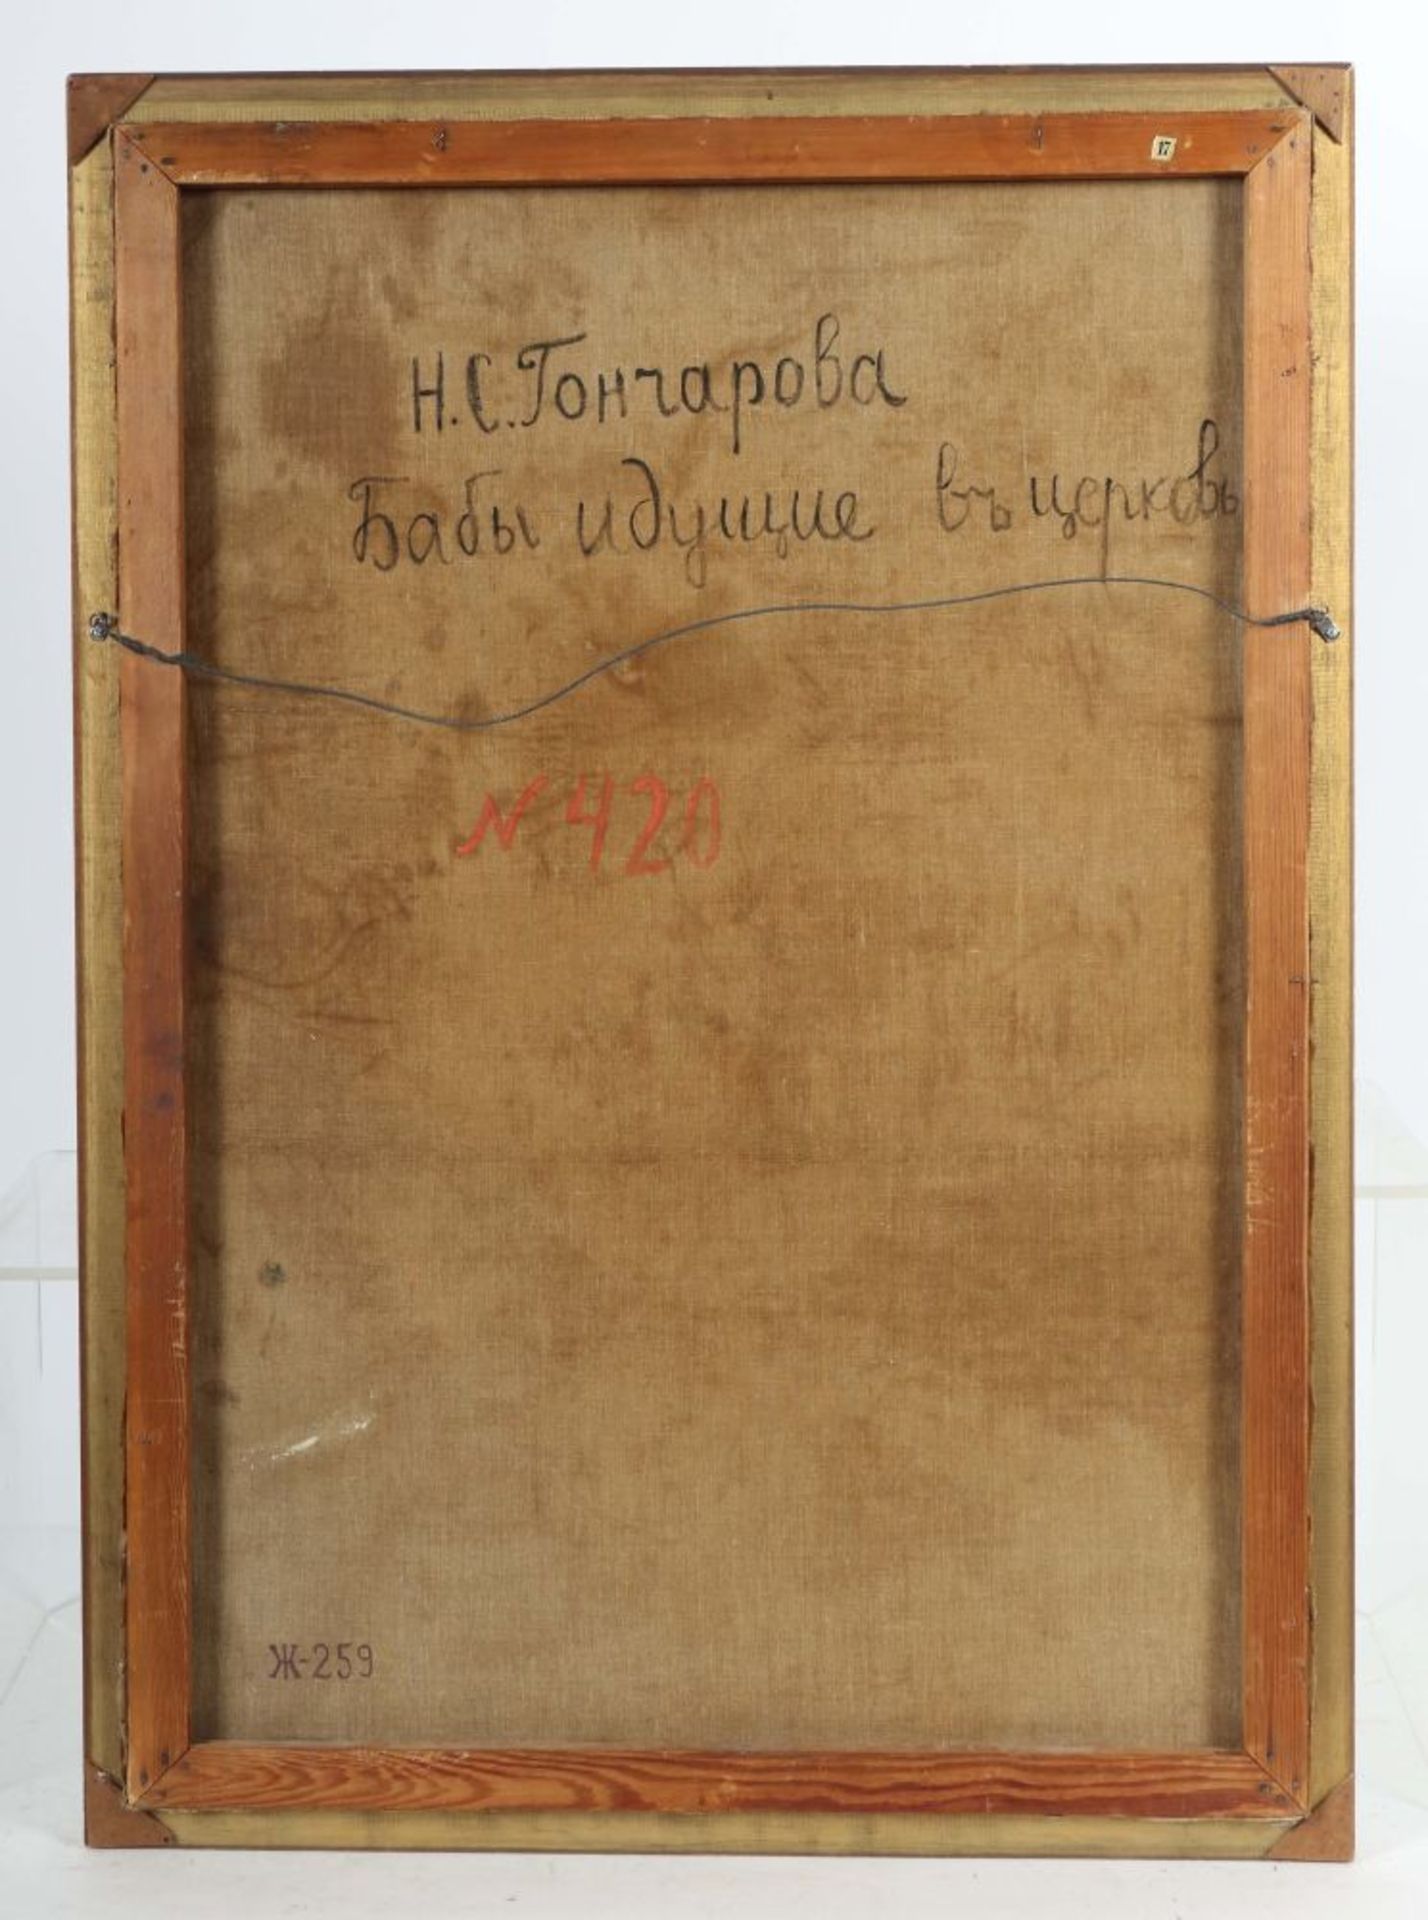 17
Н.С.Гончарова
Бабы идущие въ церковь
N 420
Ж-259